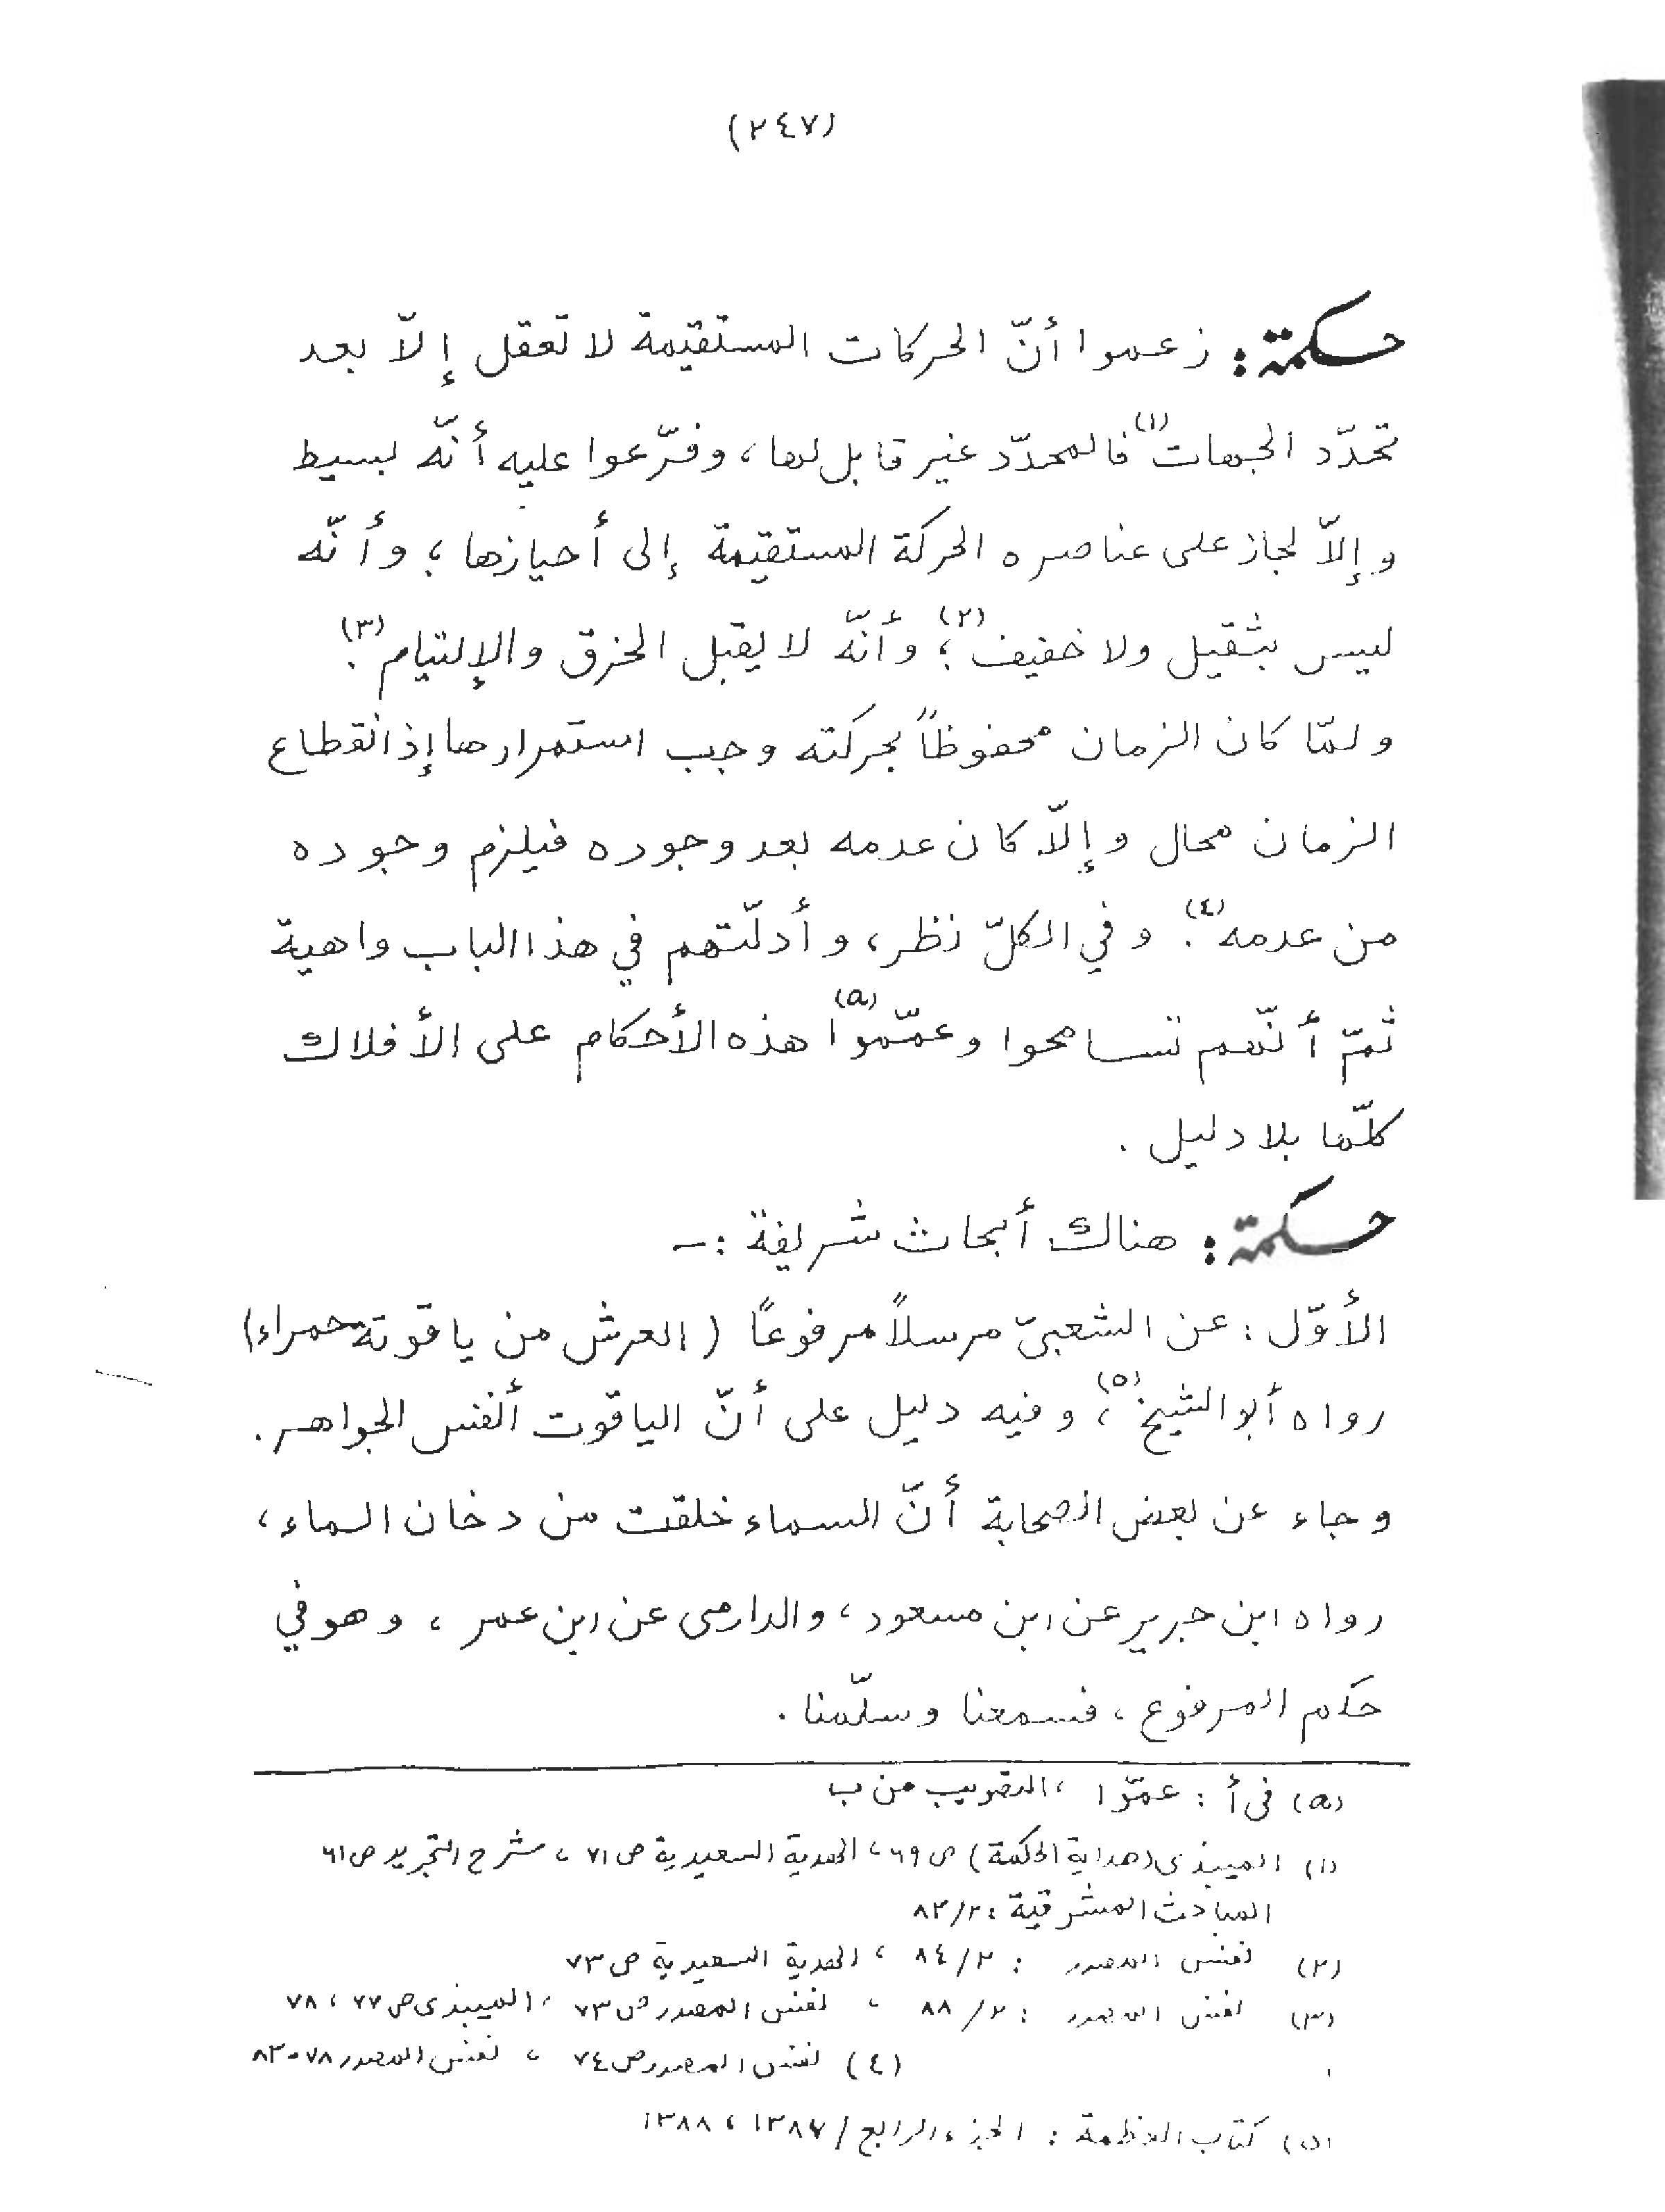 (٢٤٧)
حكمة: زعموا أنّ الحركات المستقيمة لا تعقل إلّا بعد
تحدّد الجهات(١) فالمحدّد غير قابل لها، وفرّعوا عليه أنّه بسيط
وإلّا لجاز على عناصره الحركة المستقيمة إلى أحيازها؛ وأنّه
ليس بثقيل ولا خفيف(٢)؛ وأنّه لا يقبل الخرق والإلتيام(٣).
ولمّا كان الزمان محفوظاً بحركته وجب استمرارها إذ انقطاع
الزمان محال وإلّا كان عدمه بعد وجوده فيلزم وجوده
من عدمه(٤). وفي الكلّ نظر، وأدلّتهم في هذا الباب واهية
ثمّ أنّهم تسامحوا وعمّموا(a) هذه الأحكام على الأفلاك
كلّها بلا دليل.
حكمة: هناك أبحاث شريفة :-
الأوّل: عن الشعبيّ مرسلاً مرفوعًا (العرش من ياقوتة حمراء)
رواه أبو الشيخ(٥)، وفيه دليل على أنّ الياقوت أنفس الجواهر.
وجاء عن بعض الصحابة أنّ السماء خلقت من دخان الماء،
رواه ابن جرير عن ابن مسعود، والدارمى عن ابن عمر، وهو في
حكم المرفوع، فسمعنا وسلّمنا.
(a) فى أ: عمّوا، التصويب من ب
(١) الميبذى (هداية الحكمة) ص ٦٩، الهدية السعيدية ص ٧١، شرح التجريد ص ٦١
المباحث المشرقية: ٨٣/٢
(٢) نفس المصدر: ٨٤/٢، الهدية السعيدية ص ٧٣
(٣) نفس المصدر: ٨٨/٢، نفس المصدر ص ٧٣، الميبذى ص ٧٧، ٧٨
(٤) نفس المصدر ص ٧٤، نفس المصدر ٧٨-٨٣
(٥) كتاب العظمة: الجزء الرابع/١٣٨٧، ١٣٨٨